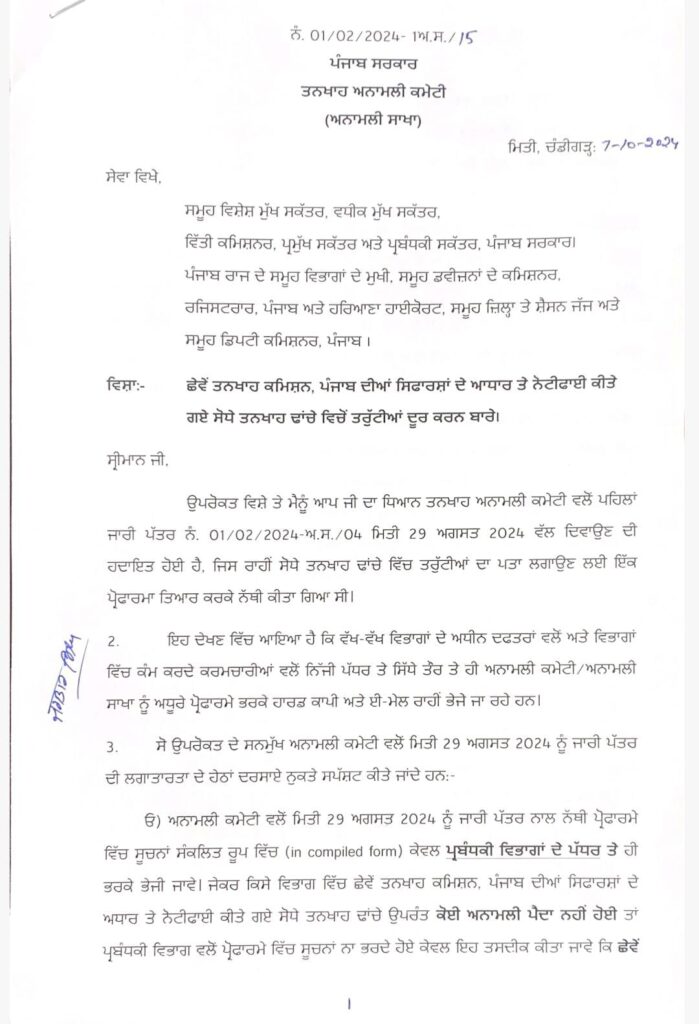 ਨੰ. 01/02/2024- 1ਅ.ਸ./15
ਪੰਜਾਬ ਸਰਕਾਰ
ਤਨਖਾਹ ਅਨਾਮਲੀ ਕਮੇਟੀ
(ਅਨਾਮਲੀ ਸਾਖਾ)
ਮਿਤੀ, ਚੰਡੀਗੜ੍ਹ: 7-10-2024
ਸੇਵਾ ਵਿਖੇ,
ਸਮੂਹ ਵਿਸ਼ੇਸ਼ ਮੁੱਖ ਸਕੱਤਰ, ਵਧੀਕ ਮੁੱਖ ਸਕੱਤਰ,
ਵਿੱਤੀ ਕਮਿਸ਼ਨਰ, ਪ੍ਰਮੁੱਖ ਸਕੱਤਰ ਅਤੇ ਪ੍ਰਬੰਧਕੀ ਸਕੱਤਰ, ਪੰਜਾਬ ਸਰਕਾਰ।
ਪੰਜਾਬ ਰਾਜ ਦੇ ਸਮੂਹ ਵਿਭਾਗਾਂ ਦੇ ਮੁਖੀ, ਸਮੂਹ ਡਵੀਜ਼ਨਾਂ ਦੇ ਕਮਿਸ਼ਨਰ,
ਰਜਿਸਟਰਾਰ, ਪੰਜਾਬ ਅਤੇ ਹਰਿਆਣਾ ਹਾਈਕੋਰਟ, ਸਮੂਹ ਜ਼ਿਲ੍ਹਾ ਤੇ ਸ਼ੈਸਨ ਜੱਜ ਅਤੇ
ਸਮੂਹ ਡਿਪਟੀ ਕਮਿਸ਼ਨਰ, ਪੰਜਾਬ ।
ਵਿਸ਼ਾ:- ਛੇਵੇਂ ਤਨਖਾਹ ਕਮਿਸ਼ਨ, ਪੰਜਾਬ ਦੀਆਂ ਸਿਫਾਰਸ਼ਾਂ ਦੇ ਆਧਾਰ ਤੇ ਨੋਟੀਫਾਈ ਕੀਤੇ
ਗਏ ਸੋਧੇ ਤਨਖਾਹ ਢਾਂਚੇ ਵਿਚੋਂ ਤਰੁੱਟੀਆਂ ਦੂਰ ਕਰਨ ਬਾਰੇ।
ਸ੍ਰੀਮਾਨ ਜੀ,
ਉਪਰੋਕਤ ਵਿਸ਼ੇ ਤੇ ਮੈਨੂੰ ਆਪ ਜੀ ਦਾ ਧਿਆਨ ਤਨਖਾਹ ਅਨਾਮਲੀ ਕਮੇਟੀ ਵਲੋਂ ਪਹਿਲਾਂ
ਜਾਰੀ ਪੱਤਰ ਨੰ. 01/02/2024-ਅ.ਸ./04 ਮਿਤੀ 29 ਅਗਸਤ 2024 ਵੱਲ ਦਿਵਾਉਣ ਦੀ
ਹਦਾਇਤ ਹੋਈ ਹੈ, ਜਿਸ ਰਾਹੀਂ ਸੋਧੇ ਤਨਖਾਹ ਢਾਂਚੇ ਵਿੱਚ ਤਰੁੱਟੀਆਂ ਦਾ ਪਤਾ ਲਗਾਉਣ ਲਈ ਇੱਕ
ਪ੍ਰੋਫਾਰਮਾ ਤਿਆਰ ਕਰਕੇ ਨੱਥੀ ਕੀਤਾ ਗਿਆ ਸੀ।
2. ਇਹ ਦੇਖਣ ਵਿੱਚ ਆਇਆ ਹੈ ਕਿ ਵੱਖ-ਵੱਖ ਵਿਭਾਗਾਂ ਦੇ ਅਧੀਨ ਦਫਤਰਾਂ ਵਲੋਂ ਅਤੇ ਵਿਭਾਗਾਂ
ਵਿੱਚ ਕੰਮ ਕਰਦੇ ਕਰਮਚਾਰੀਆਂ ਵਲੋਂ ਨਿੱਜੀ ਪੱਧਰ ਤੇ ਸਿੱਧੇ ਤੌਰ ਤੇ ਹੀ ਅਨਾਮਲੀ ਕਮੇਟੀ/ਅਨਾਮਲੀ
ਸਾਖਾ ਨੂੰ ਅਧੂਰੇ ਪ੍ਰੋਫਾਰਮੇ ਭਰਕੇ ਹਾਰਡ ਕਾਪੀ ਅਤੇ ਈ-ਮੇਲ ਰਾਹੀਂ ਭੇਜੇ ਜਾ ਰਹੇ ਹਨ।
3. ਸੋ ਉਪਰੋਕਤ ਦੇ ਸਨਮੁੱਖ ਅਨਾਮਲੀ ਕਮੇਟੀ ਵਲੋਂ ਮਿਤੀ 29 ਅਗਸਤ 2024 ਨੂੰ ਜਾਰੀ ਪੱਤਰ
ਦੀ ਲਗਾਤਾਰਤਾ ਦੇ ਹੇਠਾਂ ਦਰਸਾਏ ਨੁਕਤੇ ਸਪੱਸ਼ਟ ਕੀਤੇ ਜਾਂਦੇ ਹਨ:-
ੳ) ਅਨਾਮਲੀ ਕਮੇਟੀ ਵਲੋਂ ਮਿਤੀ 29 ਅਗਸਤ 2024 ਨੂੰ ਜਾਰੀ ਪੱਤਰ ਨਾਲ ਨੱਥੀ ਪ੍ਰੋਫਾਰਮੇ
ਵਿੱਚ ਸੂਚਨਾਂ ਸੰਕਲਿਤ ਰੂਪ ਵਿੱਚ (in compiled form) ਕੇਵਲ ਪ੍ਰਬੰਧਕੀ ਵਿਭਾਗਾਂ ਦੇ ਪੱਧਰ ਤੇ ਹੀ
ਭਰਕੇ ਭੇਜੀ ਜਾਵੇ। ਜੇਕਰ ਕਿਸੇ ਵਿਭਾਗ ਵਿੱਚ ਛੇਵੇਂ ਤਨਖਾਹ ਕਮਿਸ਼ਨ, ਪੰਜਾਬ ਦੀਆਂ ਸਿਫਾਰਸ਼ਾਂ ਦੇ
ਅਧਾਰ ਤੇ ਨੋਟੀਫਾਈ ਕੀਤੇ ਗਏ ਸੋਧੇ ਤਨਖਾਹ ਢਾਂਚੇ ਉਪਰੰਤ ਕੋਈ ਅਨਾਮਲੀ ਪੈਦਾ ਨਹੀਂ ਹੋਈ ਤਾਂ
ਪ੍ਰਬੰਧਕੀ ਵਿਭਾਗ ਵਲੋਂ ਪ੍ਰੋਫਾਰਮੇ ਵਿੱਚ ਸੂਚਨਾਂ ਨਾ ਭਰਦੇ ਹੋਏ ਕੇਵਲ ਇਹ ਤਸਦੀਕ ਕੀਤਾ ਜਾਵੇ ਕਿ ਛੇਵੇਂ
1